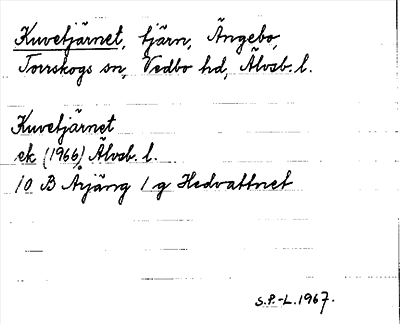 Kuvetjärnet, tjärn, Ängebo,
Torrskogs sn, Vedbo hd, Älvsb. l.
Kuvetjärnet
ek (1966) Älvsb. l.
10 B Årjäng 1 g Hedvattnet
S.P.-L. 1967.